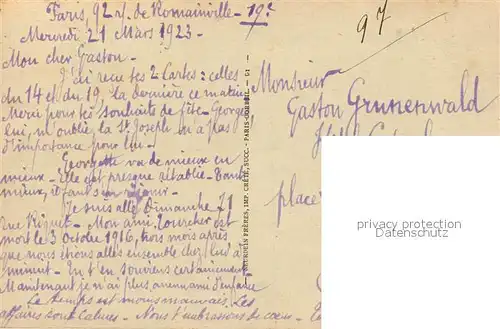 Paris, 92 r/. de Romainville - 19e
97
Mercredi 21 Mars 1923 -
Mon cher Gaston -
J'ai reçu tes 2 Cartes : celles
du 14 et du 19. La dernière ce matin
Merci pour tes souhaits de fête - Georges
lui, m'oublie, la St Joseph n'a pas
d'importance pour lui -
Georgette va de mieux en
mieux - Elle est presque rétablie - Tant
mieux,
Je suis allé Dimanche 71
rue Riquet - Mon ami Tourcher est
mort le 3 Octobre 1916, trois mois après
que nous étions allés ensemble chez lui à
Tu t'en souviens certainement
Maintenant je n'ai plus d'enfance
Le temps est moins mauvais. Les
affaires sont calmes - Nous t'embrassons de coeur -
Monsieur
Gaston Grunenwald
place
BAUDOUIN FRÈRES, IMP. CRÉTÉ, SUCC. - PARIS-CORBEIL
privacy protection
watermark